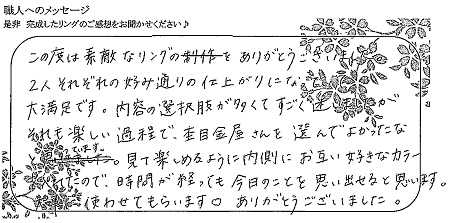 職人へのメッセージ
是非 完成したリングのご感想をお聞かせください♪
この度は素敵なリングの制作をありがとうございま
2人それぞれの好み通りの仕上がりにな
大満足です。内容の選択肢が多くてすごく が
それも楽しい過程で、杢目金屋さんを選んでよかったな
と ています。見て楽しめるように内側にお互い好きなカラー
れたので、時間が経っても今日のことを思い出せると思います。
使わせてもらいます ありがとうございました。